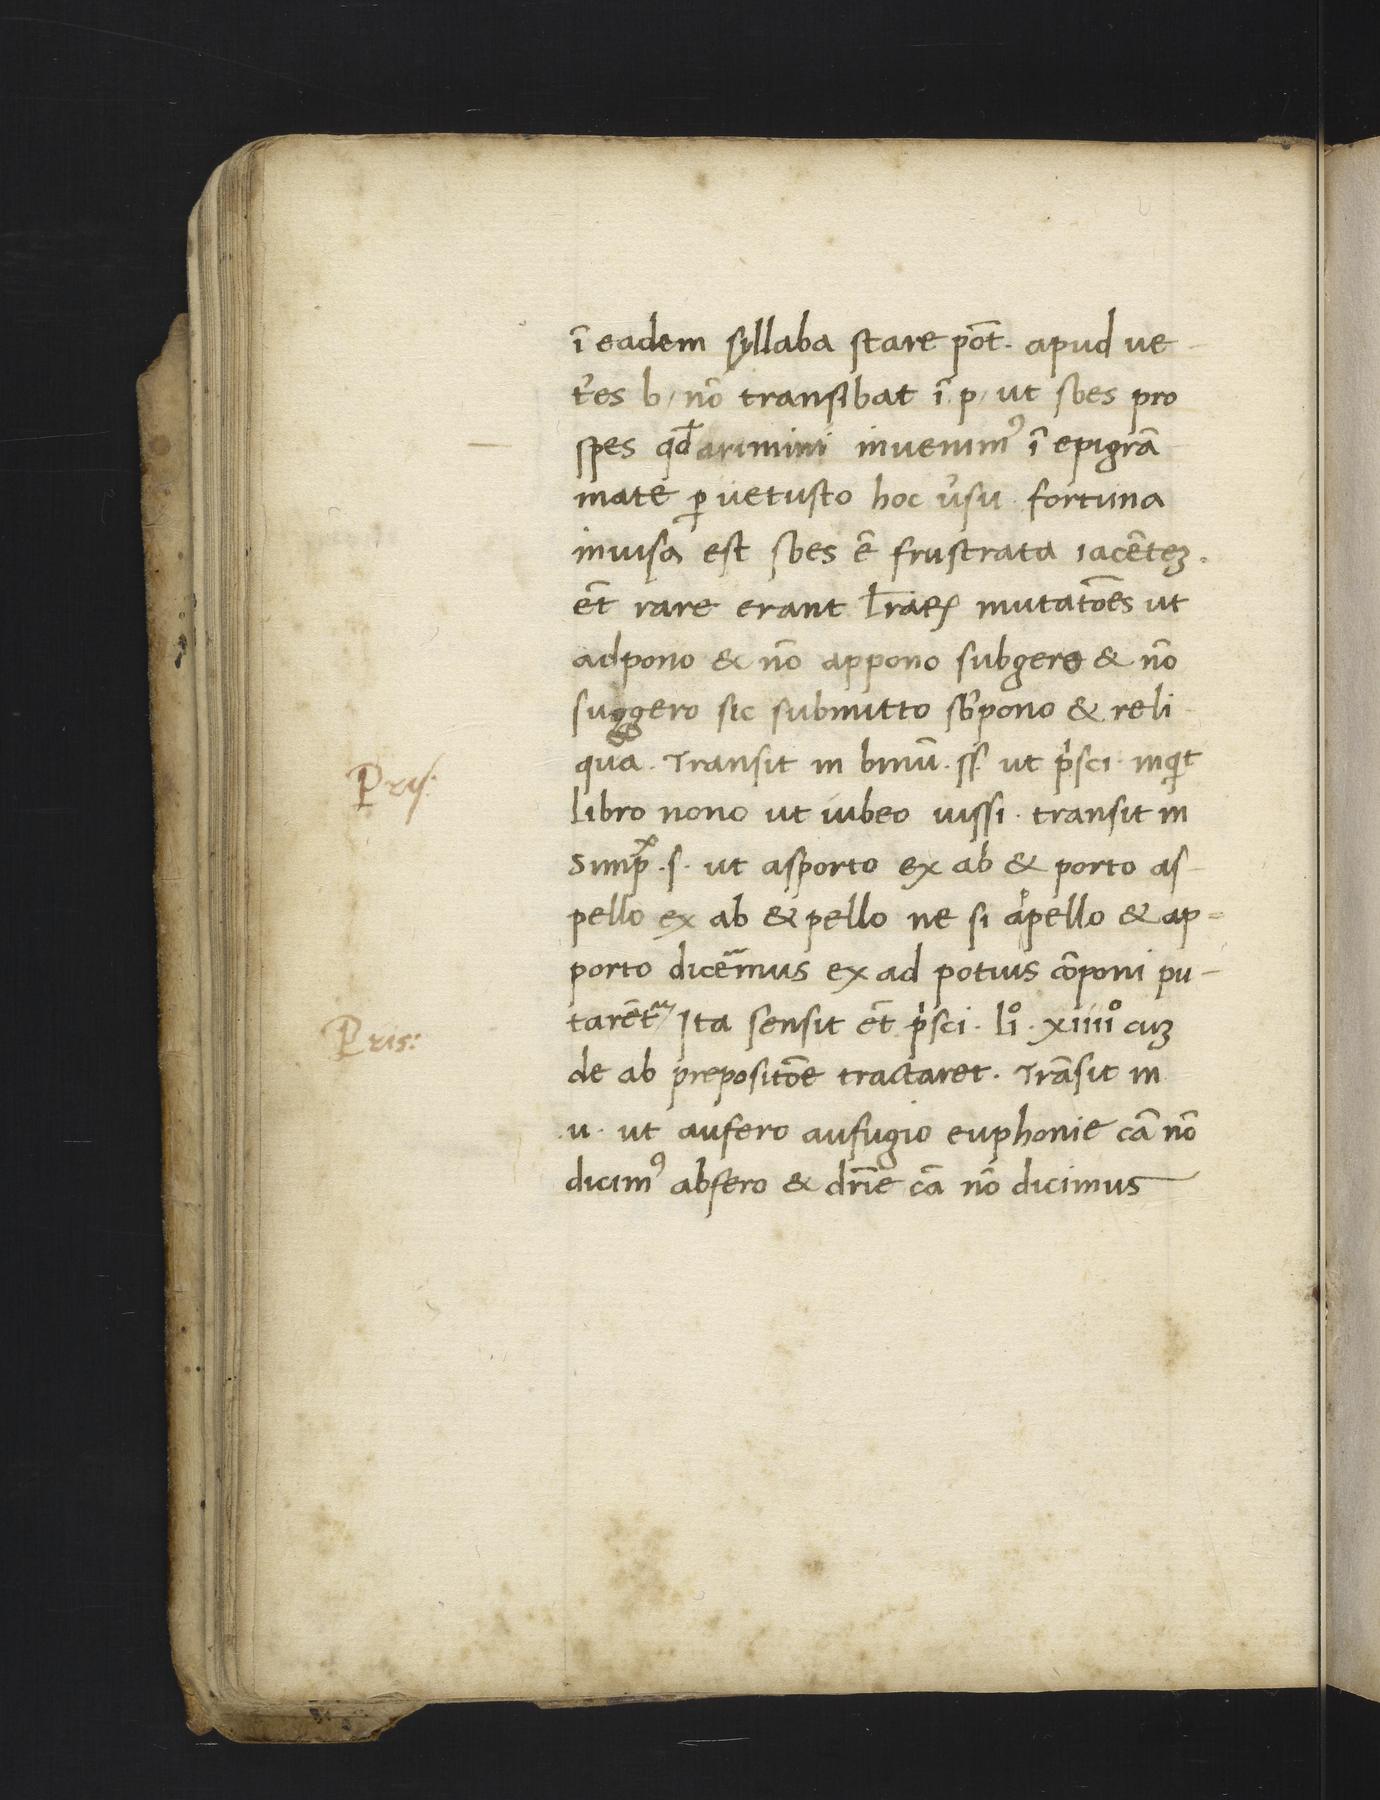 ī eadem syllaba stare pōt. apud ue-
t̓es b, nō transibat ī p, ut sbes pro
spes qđ arimini inuenimꝰ ī epigrā
mate ꝑ uetusto hoc u̓su fortuna
inuisa est sbes ē frustrata iacēteꝫ.
ēt rare erant l̄raꝝ mutatōēs ut
adpono & nō appono subgero & nō
suggero sic submitto sb̓pono & reli-
qua. Transit in binū .ss. ut p̓sci. inqͥt
Pris:
libro nono ut iubeo iussi. transit in
Simpˣ .s. ut asporto ex ab & porto as-
pello ex ab & pello ne si apello & ap=
porto dicēmus ex ad potius cōponi pu-
tarētᷣ, Ita sensit ēt p̓sci. li°. xiiii° cuꝫ
Pris:
de ab prepositōe tractaret. Trāsit in
.u. ut aufero aufugio euphonie cā nō
dicimꝰ absero & dr̄ie cā nō dicimus